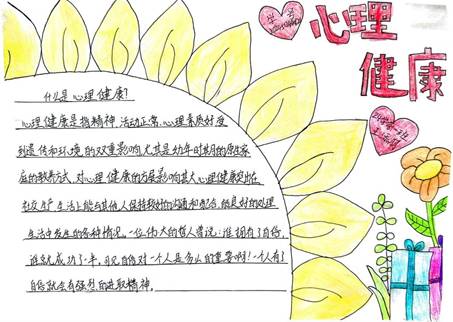 心理
健康
什么是心理健康？
心理健康是指精神、活动正常、心理素质好受
到遗传和环境的双重影响尤其是幼年时期的原生家
庭的教养方式，对心理健康的发展影响甚大心理健康突出在
社交生产生活上能与其他人保持较好的沟通和配合，能良好的处理
生活中发生的各种情况。一位伟大的哲人曾说：谁拥有了自信，
谁就成功了一半，可见自信对一个人是多么的重要啊！一个人有了
自信就会有强烈的进取精神。